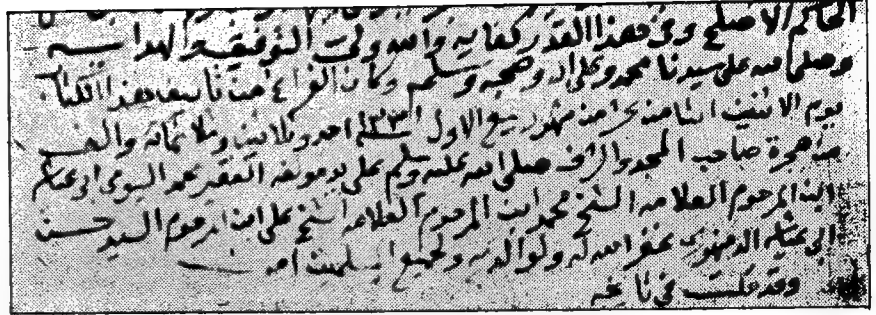 الحاكم الاصلح وفى هذا القدر كفايه والله ولى التوفيق والهدايه
وصلى الله على سيدنا محمد وعلى اله وصحبه وسلم وكان الفراغ من تأليف هذا الكتاب
يوم الاثنين الثامن من شهور ربيع الاول ١٣٣١ احد وثلاثين وثلاثمائة والف
من هجرة صاحب المجد والشرف صلى الله عليه وسلم على يد مولفه الفقير محمد
ابن المرحوم العلامه الشيخ محمد ابن المرحوم العلامه الشيخ على ابن المرحوم السيد حسن
الدمنهورى غفر الله له ولوالديه ولجميع المسلمين امين
وقد قلت فى تاريخه